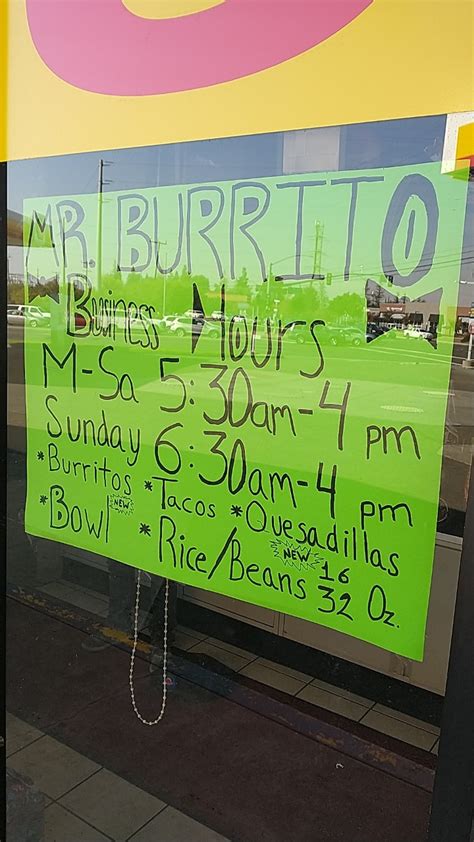 MR. BURRITO
Business Hours
M-Sa 5:30am-4 pm
Sunday 6:30am-4 pm
*Burritos *Tacos *Quesadillas
*Bowl NEW *Rice/Beans NEW 16
32 Oz.